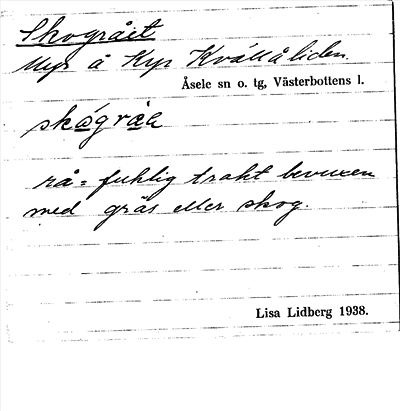 Skogrået
Myr å Kyr Kvällåliden.
Åsele sn o. tg, Västerbottens l.
rå = fuktig trakt bevuxen
med gräs eller skog.
Lisa Lidberg 1938.